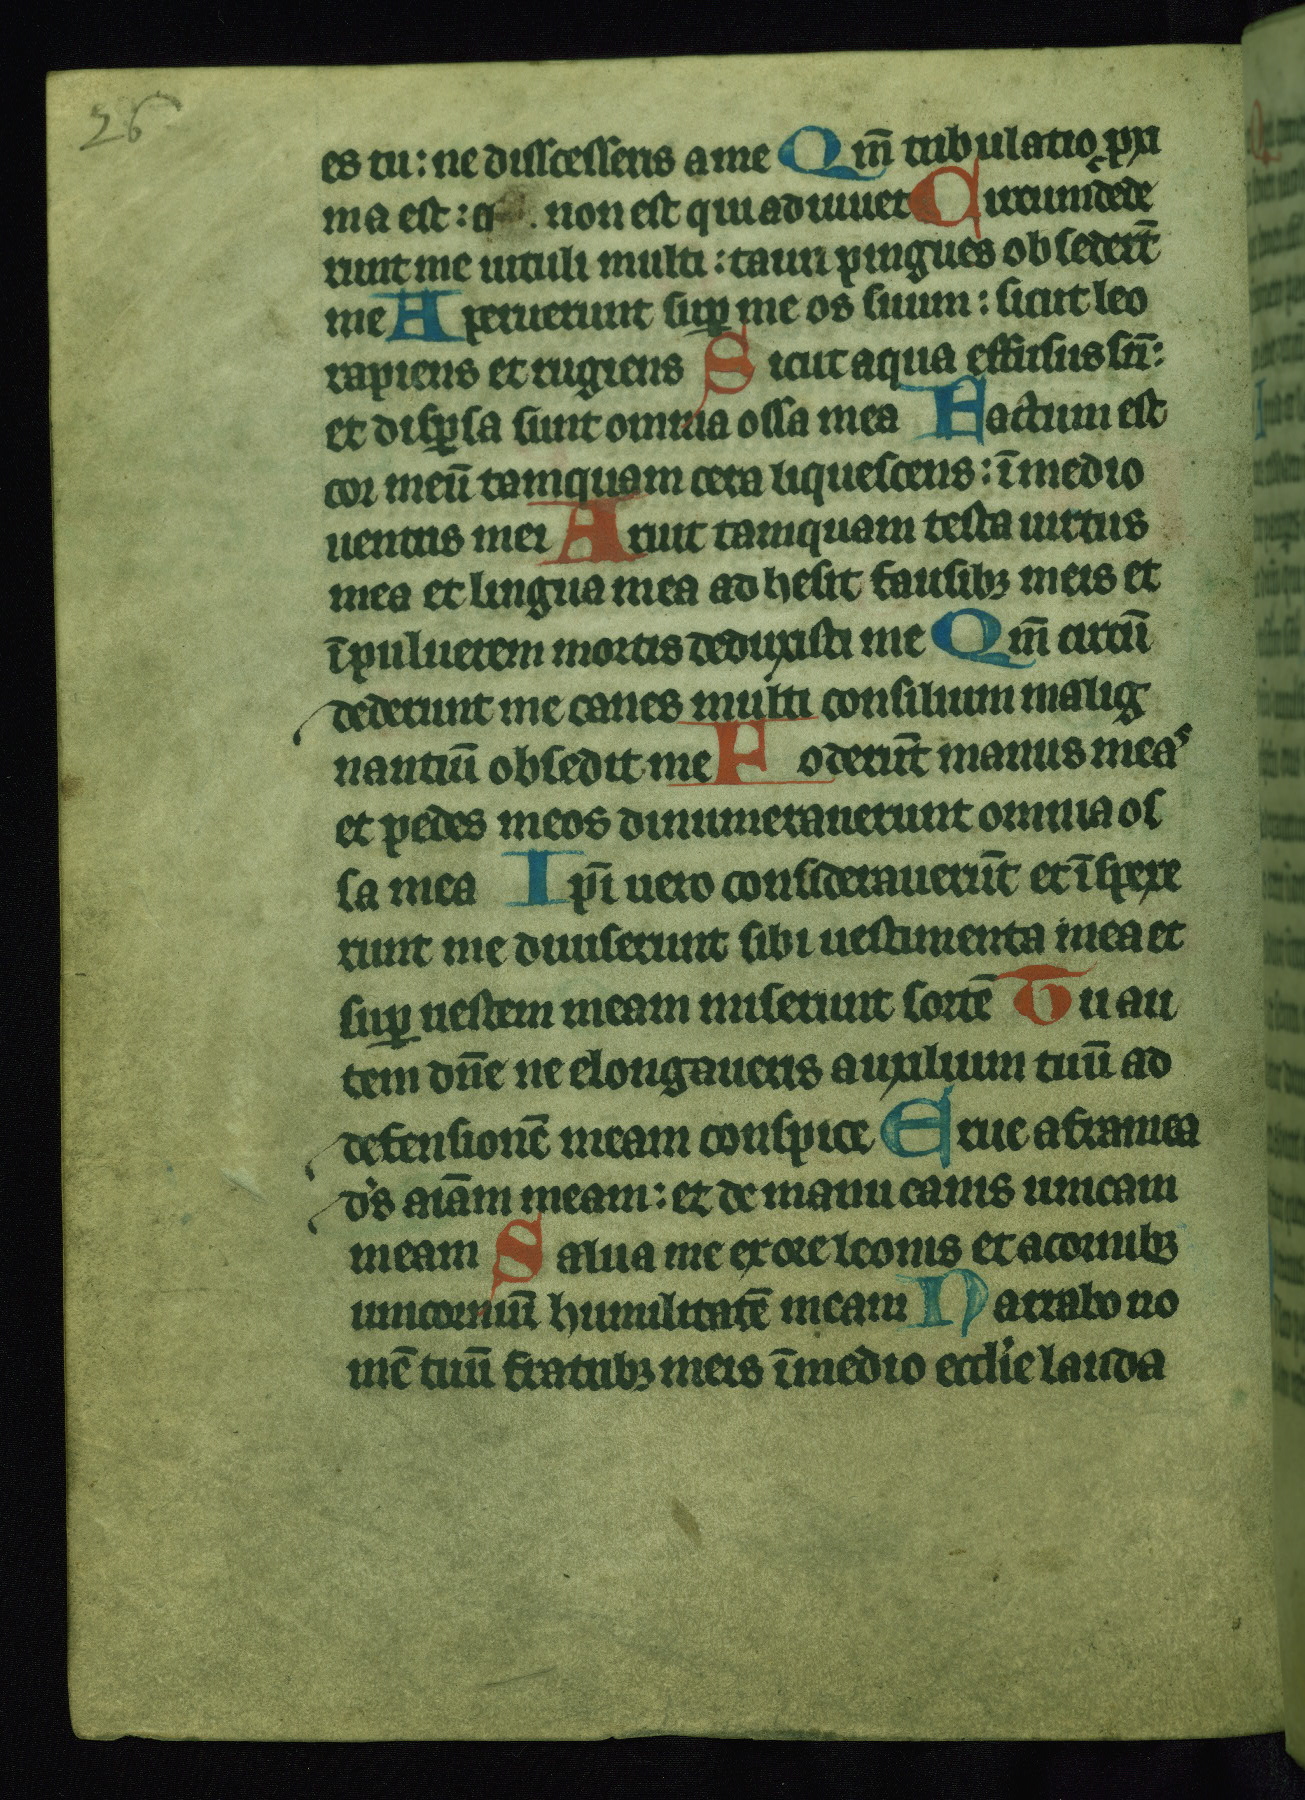 26
es tu: ne disscesseris a me Qm̄ tribulatio pxi
ma est: q non est qui adiuuet Circumdede
runt me uituli multi: tauri pingues obsederūt
me Aperuerunt suꝑ me os suum: sicut leo
rapiens et rugiens Sicut aqua effusus sū:
et disꝑsa sunt omnia ossa mea Factum est
cor meū tamquam cera liquescens: ī medio
uentris mei Aruit tamquam testa uirtus
mea et lingua mea adhesit fausibꝫ meis et
ī puluerem mortis deduxisti me Qm̄ circū
dederunt me canes multi consilium malig
nantiū obsedit me Foderūt manus meas
et pedes meos dinumerauerunt omnia os
sa mea Ip̄i uero considerauerūt et īspexe
runt me diuiserunt sibi uestimenta mea et
suꝑ uestem meam miserunt sortē Tu au
tem dn̄e ne elongaueris auxilium tuū ad
defensionē meam conspice Erue a framea
ds aīam meam: et de manu canis unicam
meam Salua me ex ore leonis et a cornibꝫ
unicorniū humilitatē meam Narrabo no
mē tuū fratribꝫ meis ī medio eccl'ie lauda